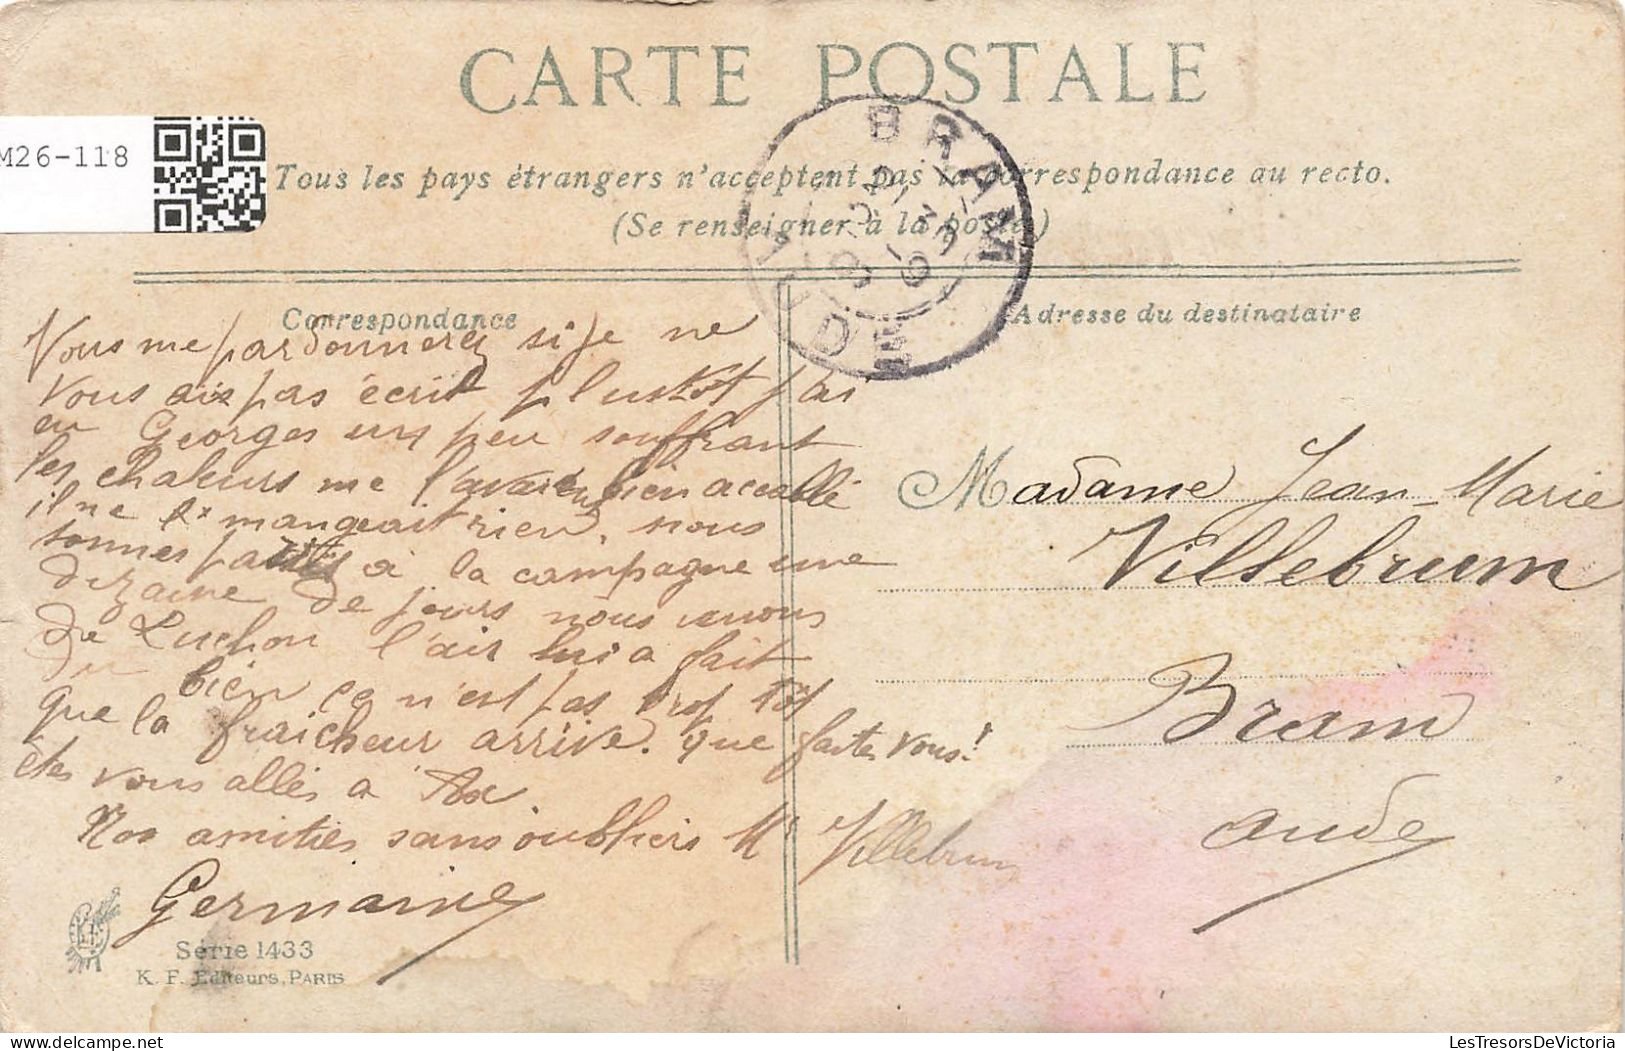 CARTE POSTALE
M26-118
Tous les pays étrangers n'acceptent pas la correspondance au recto.
(Se renseigner à la poste)
BRAM
AUDE
Correspondance
Adresse du destinataire
Vous me pardonnerez si je ne
vous aix pas écrit plustôt j'ai
eu Georges un peu souffrant
les chaleurs me l'avaient bien accablé
il ne mangeait rien, nous
sonnes partis à la campagne une
dizaine de jours nous venons
de Luchon l'air lui a fait
du bien ce n'est pas trop tôt
que la fraicheur arrive. que faites vous!
êtes vous allés a Ax
Nos amitiés sans oubliers Mr Villebrun
Germaine
Madame Jean-Marie
Villebrum
Bram
Aude
Série 1433
K. F. Editeurs, PARIS
LesTresorsDeVictoria